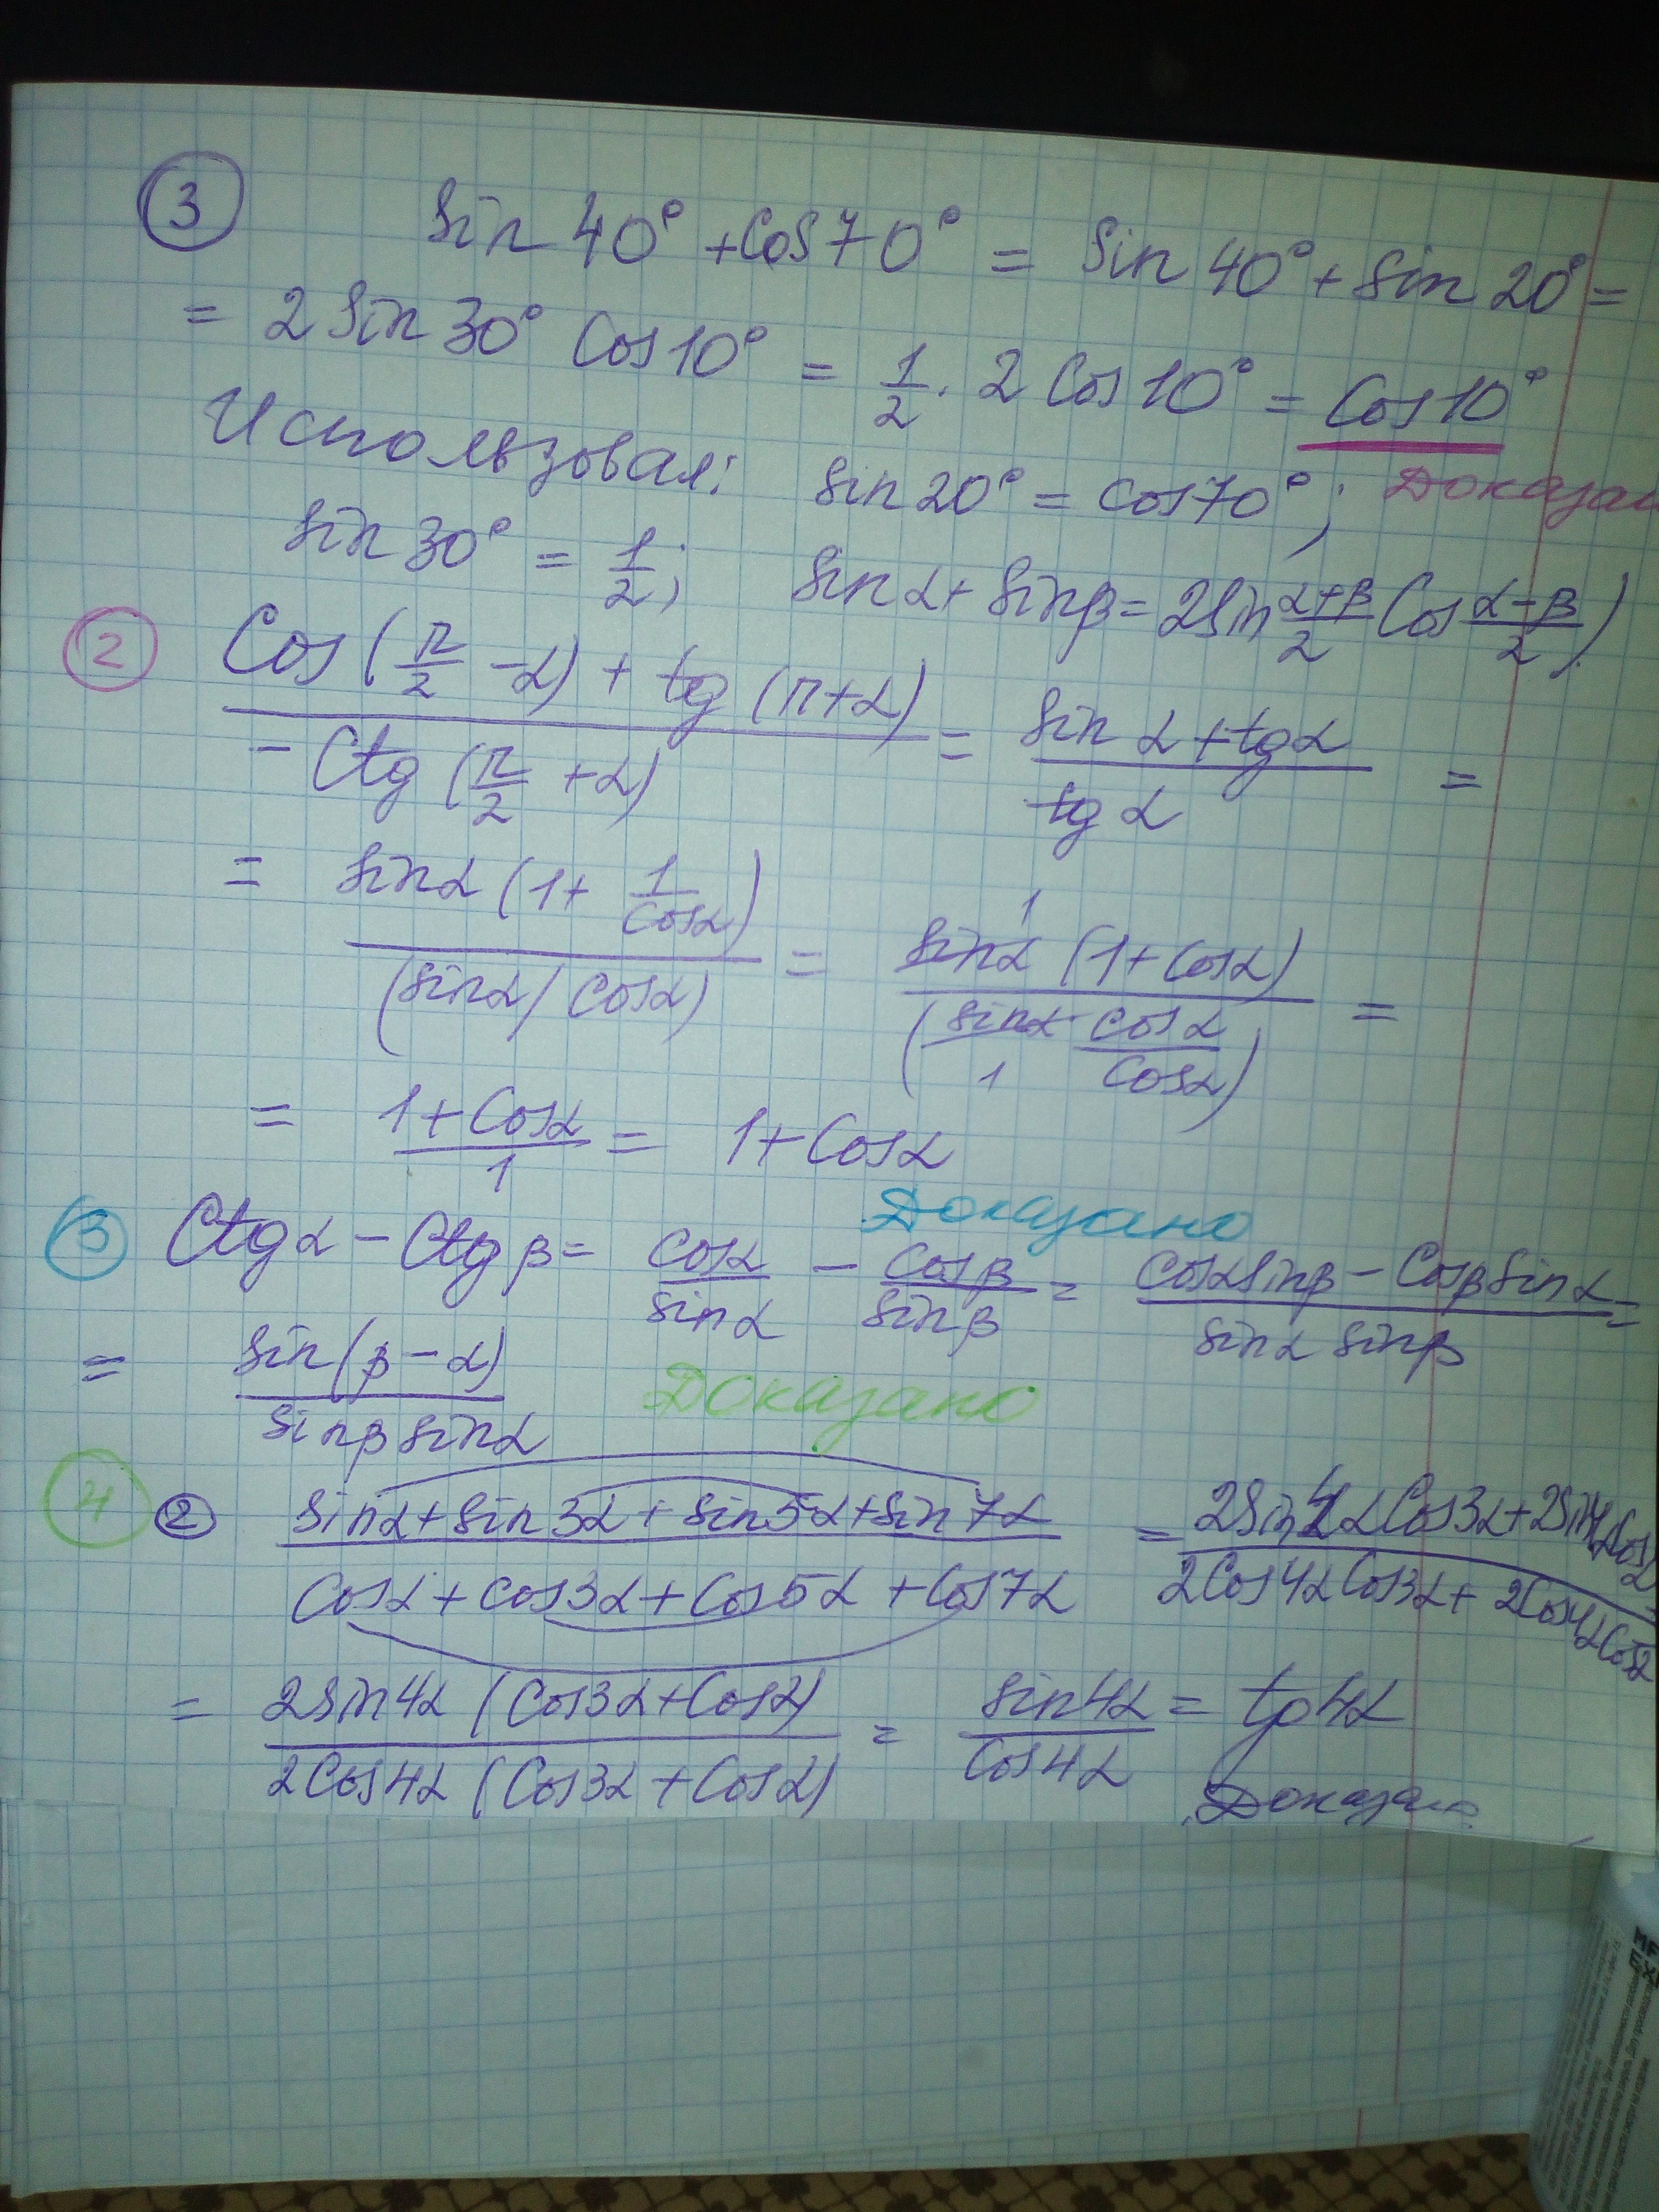 3 sin 40° + cos 70° = sin 40° + sin 20° =
= 2 sin 30° cos 10° = 1/2 · 2 cos 10° = cos 10°
Использовал: sin 20° = cos 70°;
sin 30° = 1/2; sin α + sin β = 2 sin (α+β)/2 cos (α-β)/2
2 (cos(π/2 - α) + tg(π+α)) / (-ctg(π/2 + α)) = (sin α + tg α) / tg α =
= (sin α (1 + 1/cos α)) / (sin α / cos α) = (sin α (1 + cos α)) / (sin α · cos α / cos α) =
= (1 + cos α) / 1 = 1 + cos α
Доказано
3 ctg α - ctg β = cos α / sin α - cos β / sin β = (cos α sin β - cos β sin α) / (sin α sin β) =
= sin(β - α) / (sin β sin α) Доказано
4 2 (sin α + sin 3α + sin 5α + sin 7α) / (cos α + cos 3α + cos 5α + cos 7α) = (2 sin 4α cos 3α + 2 sin 4α cos α) / (2 cos 4α cos 3α + 2 cos 4α cos α)
= (2 sin 4α (cos 3α + cos α)) / (2 cos 4α (cos 3α + cos α)) = sin 4α / cos 4α = tg 4α